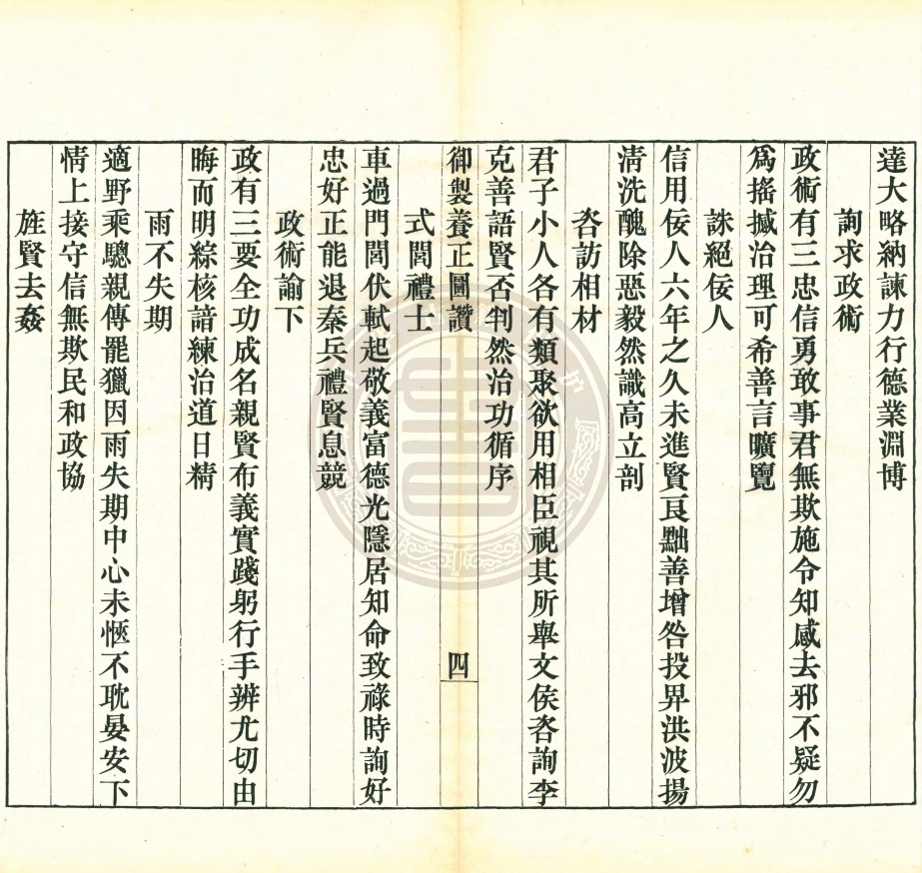 達大略納諫力行德業淵博
詢求政術
政術有三忠信勇敢事君無欺施令知感去邪不疑勿
爲搖撼治理可希善言曠覽
誅絕佞人
信用佞人六年之久未進賢良黜善增咎投畀洪波揚
淸洗醜除惡毅然識高立剖
咨訪相材
君子小人各有類聚欲用相臣視其所舉文侯咨詢李
克善語賢否判然治功循序
御製養正圖讚
四
式閭禮士
車過門閭伏軾起敬義富德光隱居知命致祿時詢好
忠好正能退秦兵禮賢息競
政術諭下
政有三要全功成名親賢布義實踐躬行手辨尤切由
晦而明綜核諳練治道日精
雨不失期
適野乘驄親傳罷獵因雨失期中心未愜不耽晏安下
情上接守信無欺民和政協
旌賢去姦